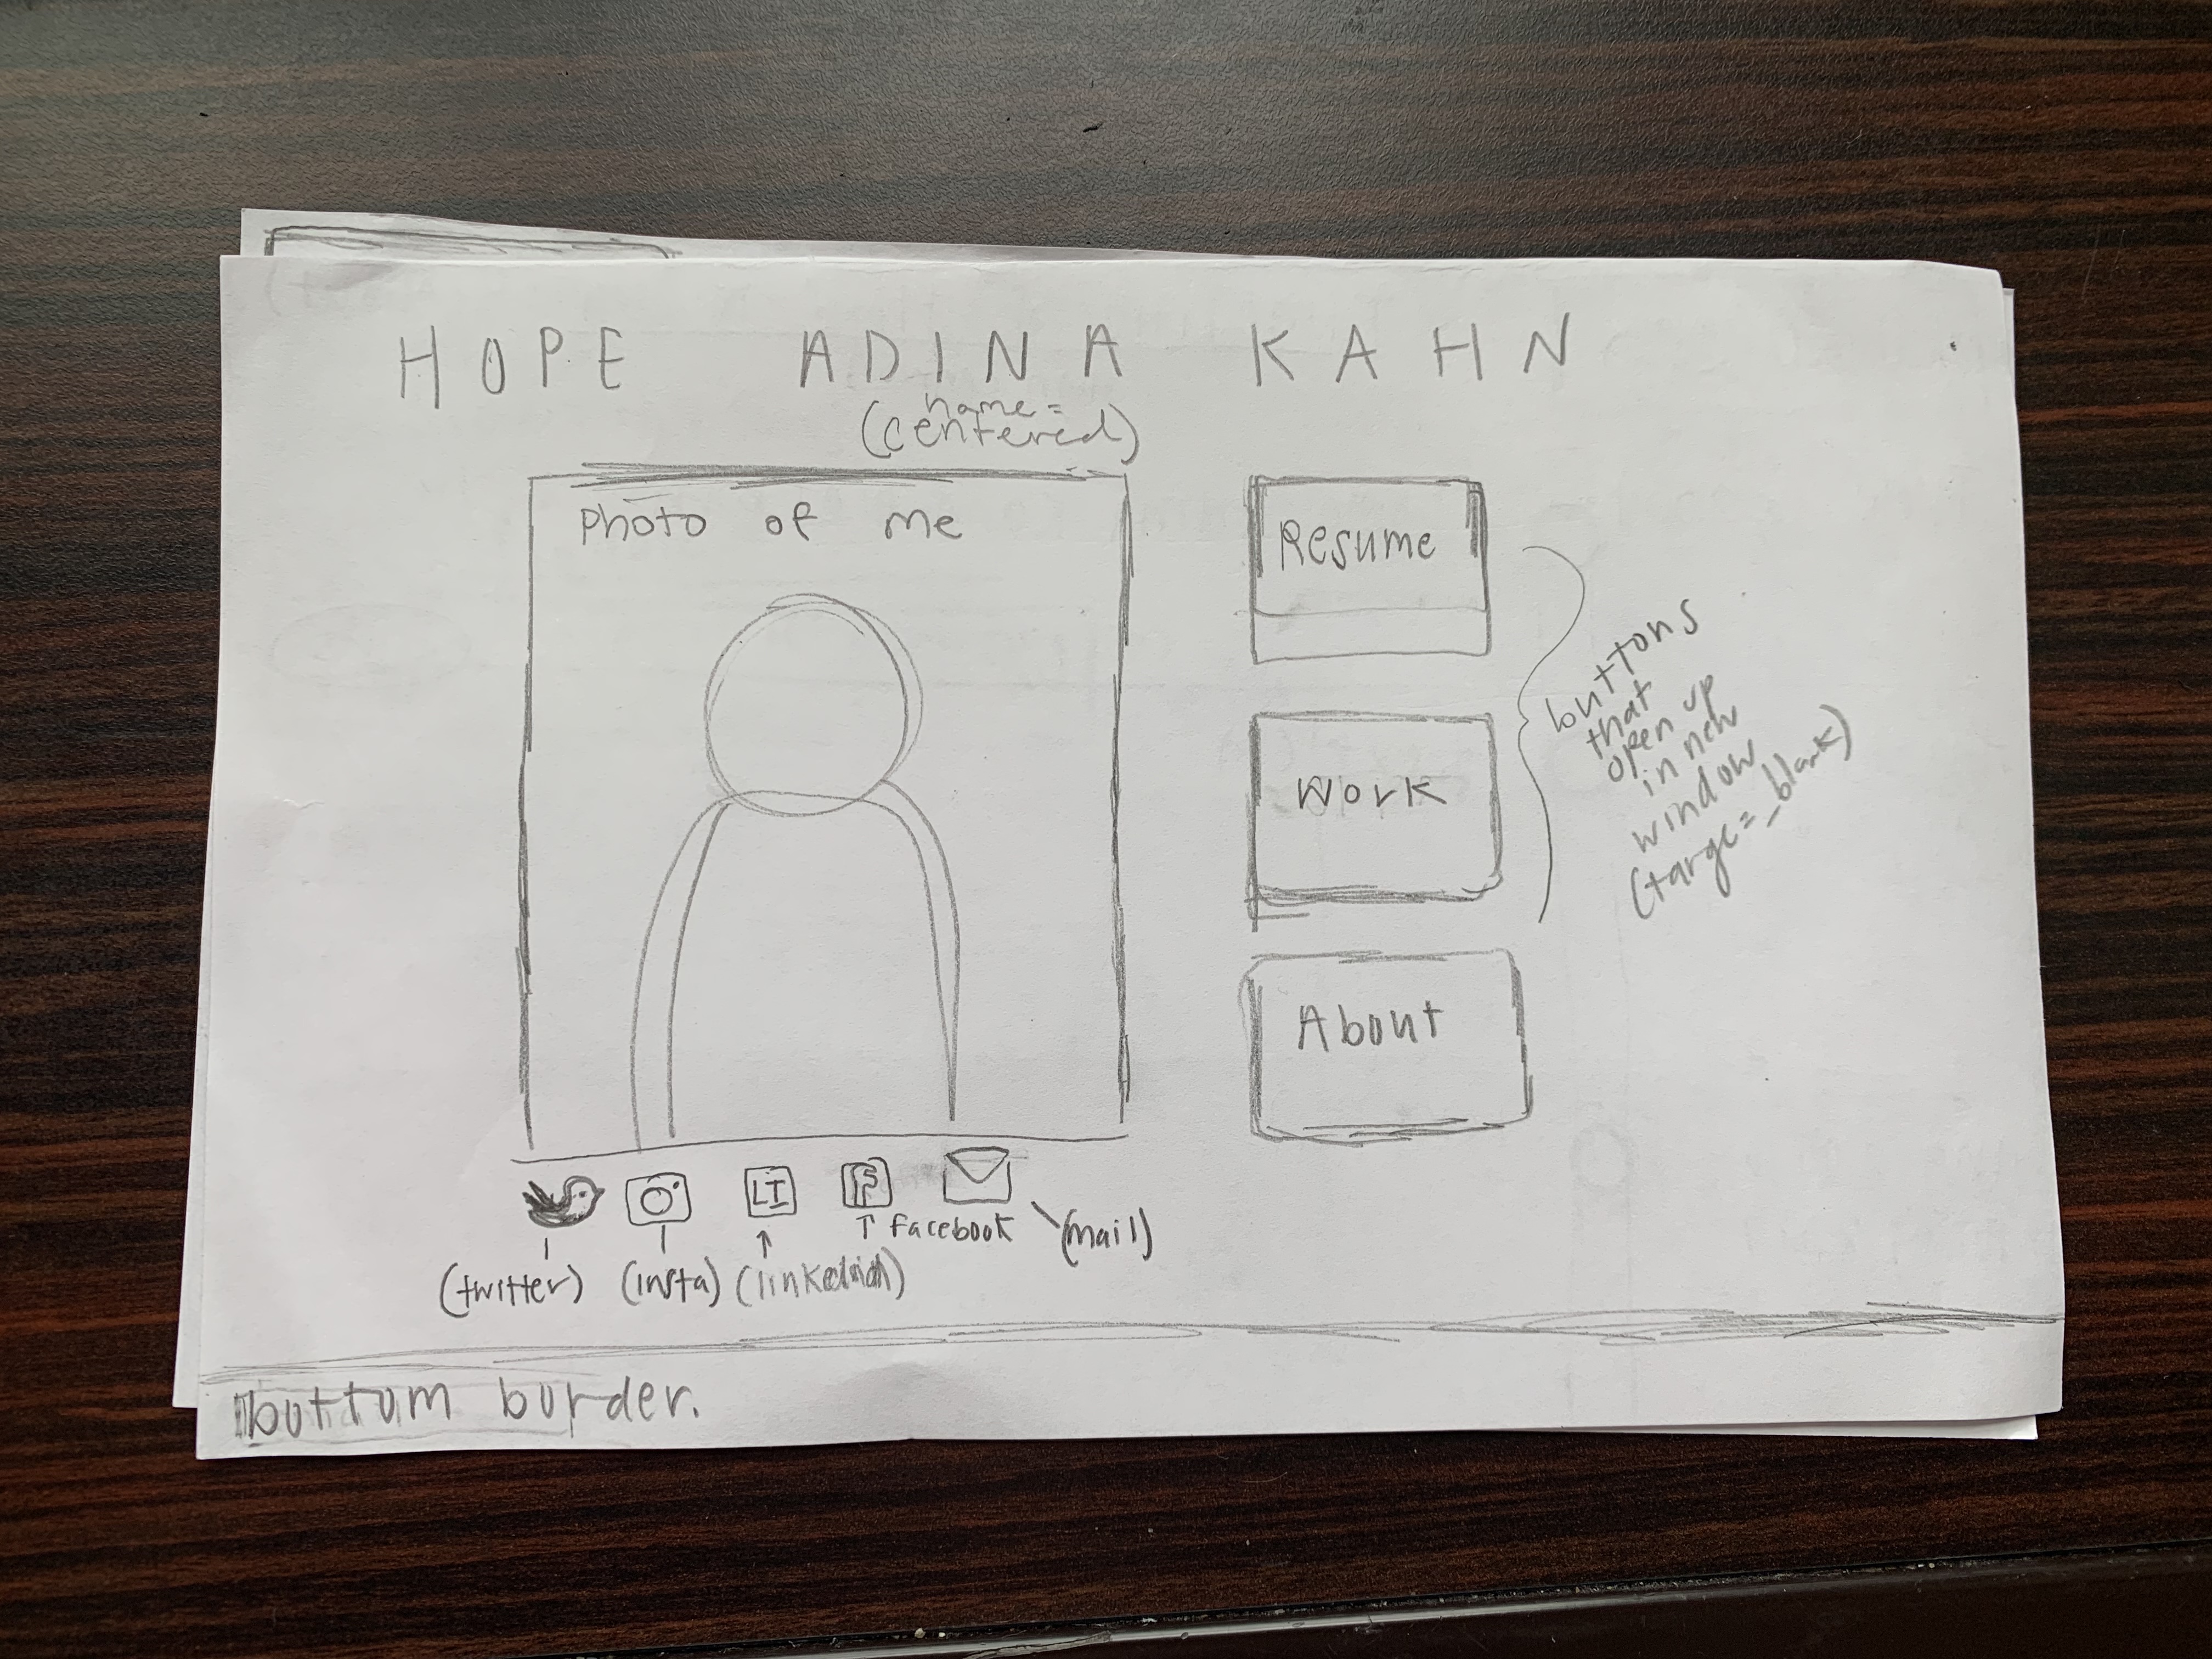 HOPE ADINA KAHN
(name =
centered)
photo of me
Resume
Work
About
buttons
that
open up
in new
window
(targe=_blank)
LI
f
(twitter) (insta) (linkedin) facebook (mail)
bottum border.